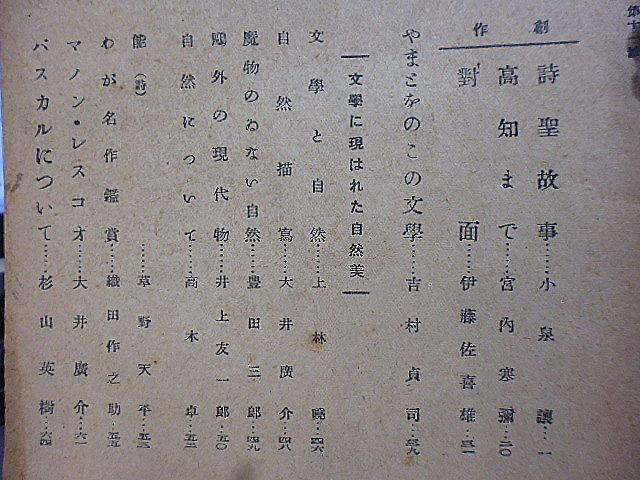 創作
詩聖故事……小泉譲…一
高知まで……宮内寒彌…二〇
對面……伊藤佐喜雄…三一
やまとをのこの文學……吉村貞司…三九
文學に現はれた自然美
文學と自然……上林暁…四六
自然描寫……大井廣介…四八
魔物のゐない自然……豊田三郎…四九
鴎外の現代物……井上友一郎…五〇
自然について……高木卓…五二
能(詩)……草野天平…五三
わが名作鑑賞……織田作之助…五五
マノン・レスコオ……大井廣介…六一
パスカルについて……杉山英樹…六四